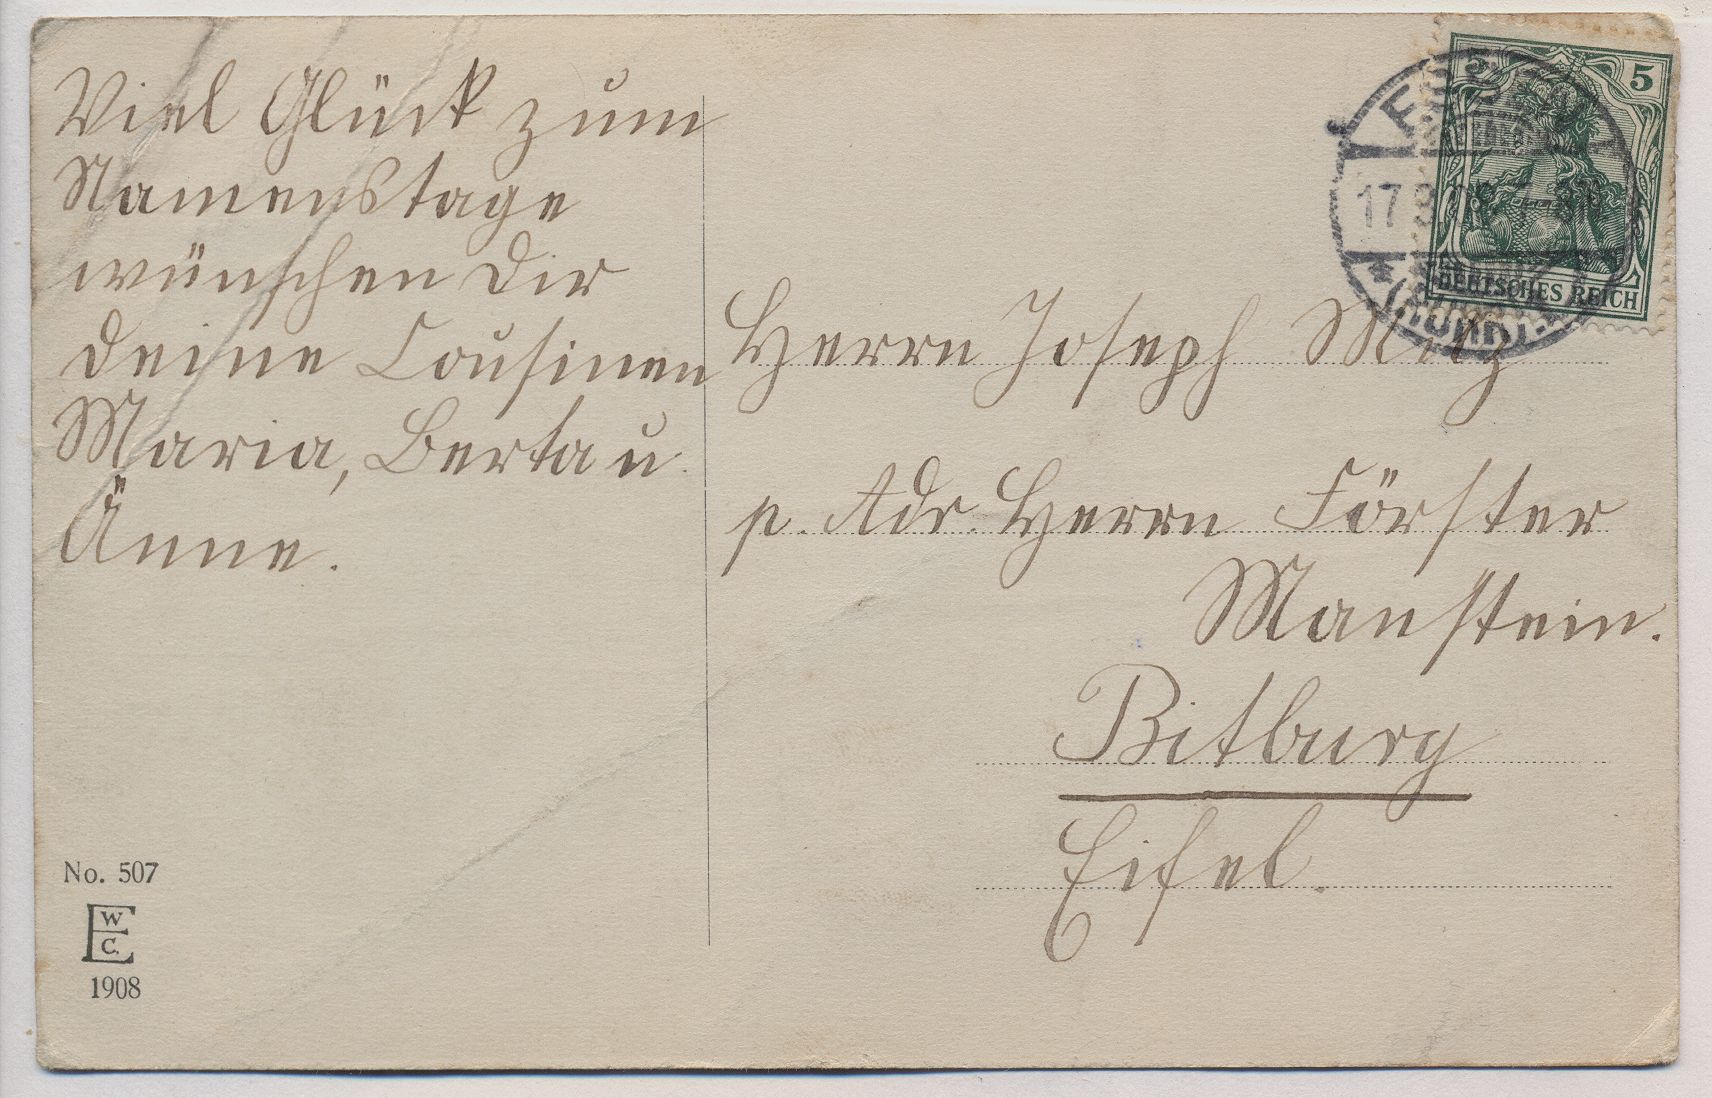 Viel Glück zum
Namenstage
wünschen Dir
deine Cousinen
Maria, Berta u.
Änne.
No. 507
E W C.
1908
5 5
17.3.
DEUTSCHES REICH
Herrn Joseph Metz
p. Adr. Herrn Förster
Manstein.
Bitburg
Eifel.